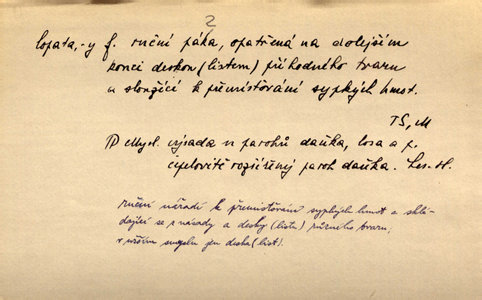 2
lopata, -y f. ruční páka, opatřená na dolejším
konci deskou (listem) příhodného tvaru
a sloužící k přemisťování sypkých hmot.
TS, M
D Mysl. výsada u parohů daňka, losa a p.
čepelovitě rozšířený paroh daňka. Les. H.
ruční nářadí k přemisťování sypkých hmot a sklá-
dající se z násady a desky (listu) různého tvaru,
v užším smyslu jen deska (list).